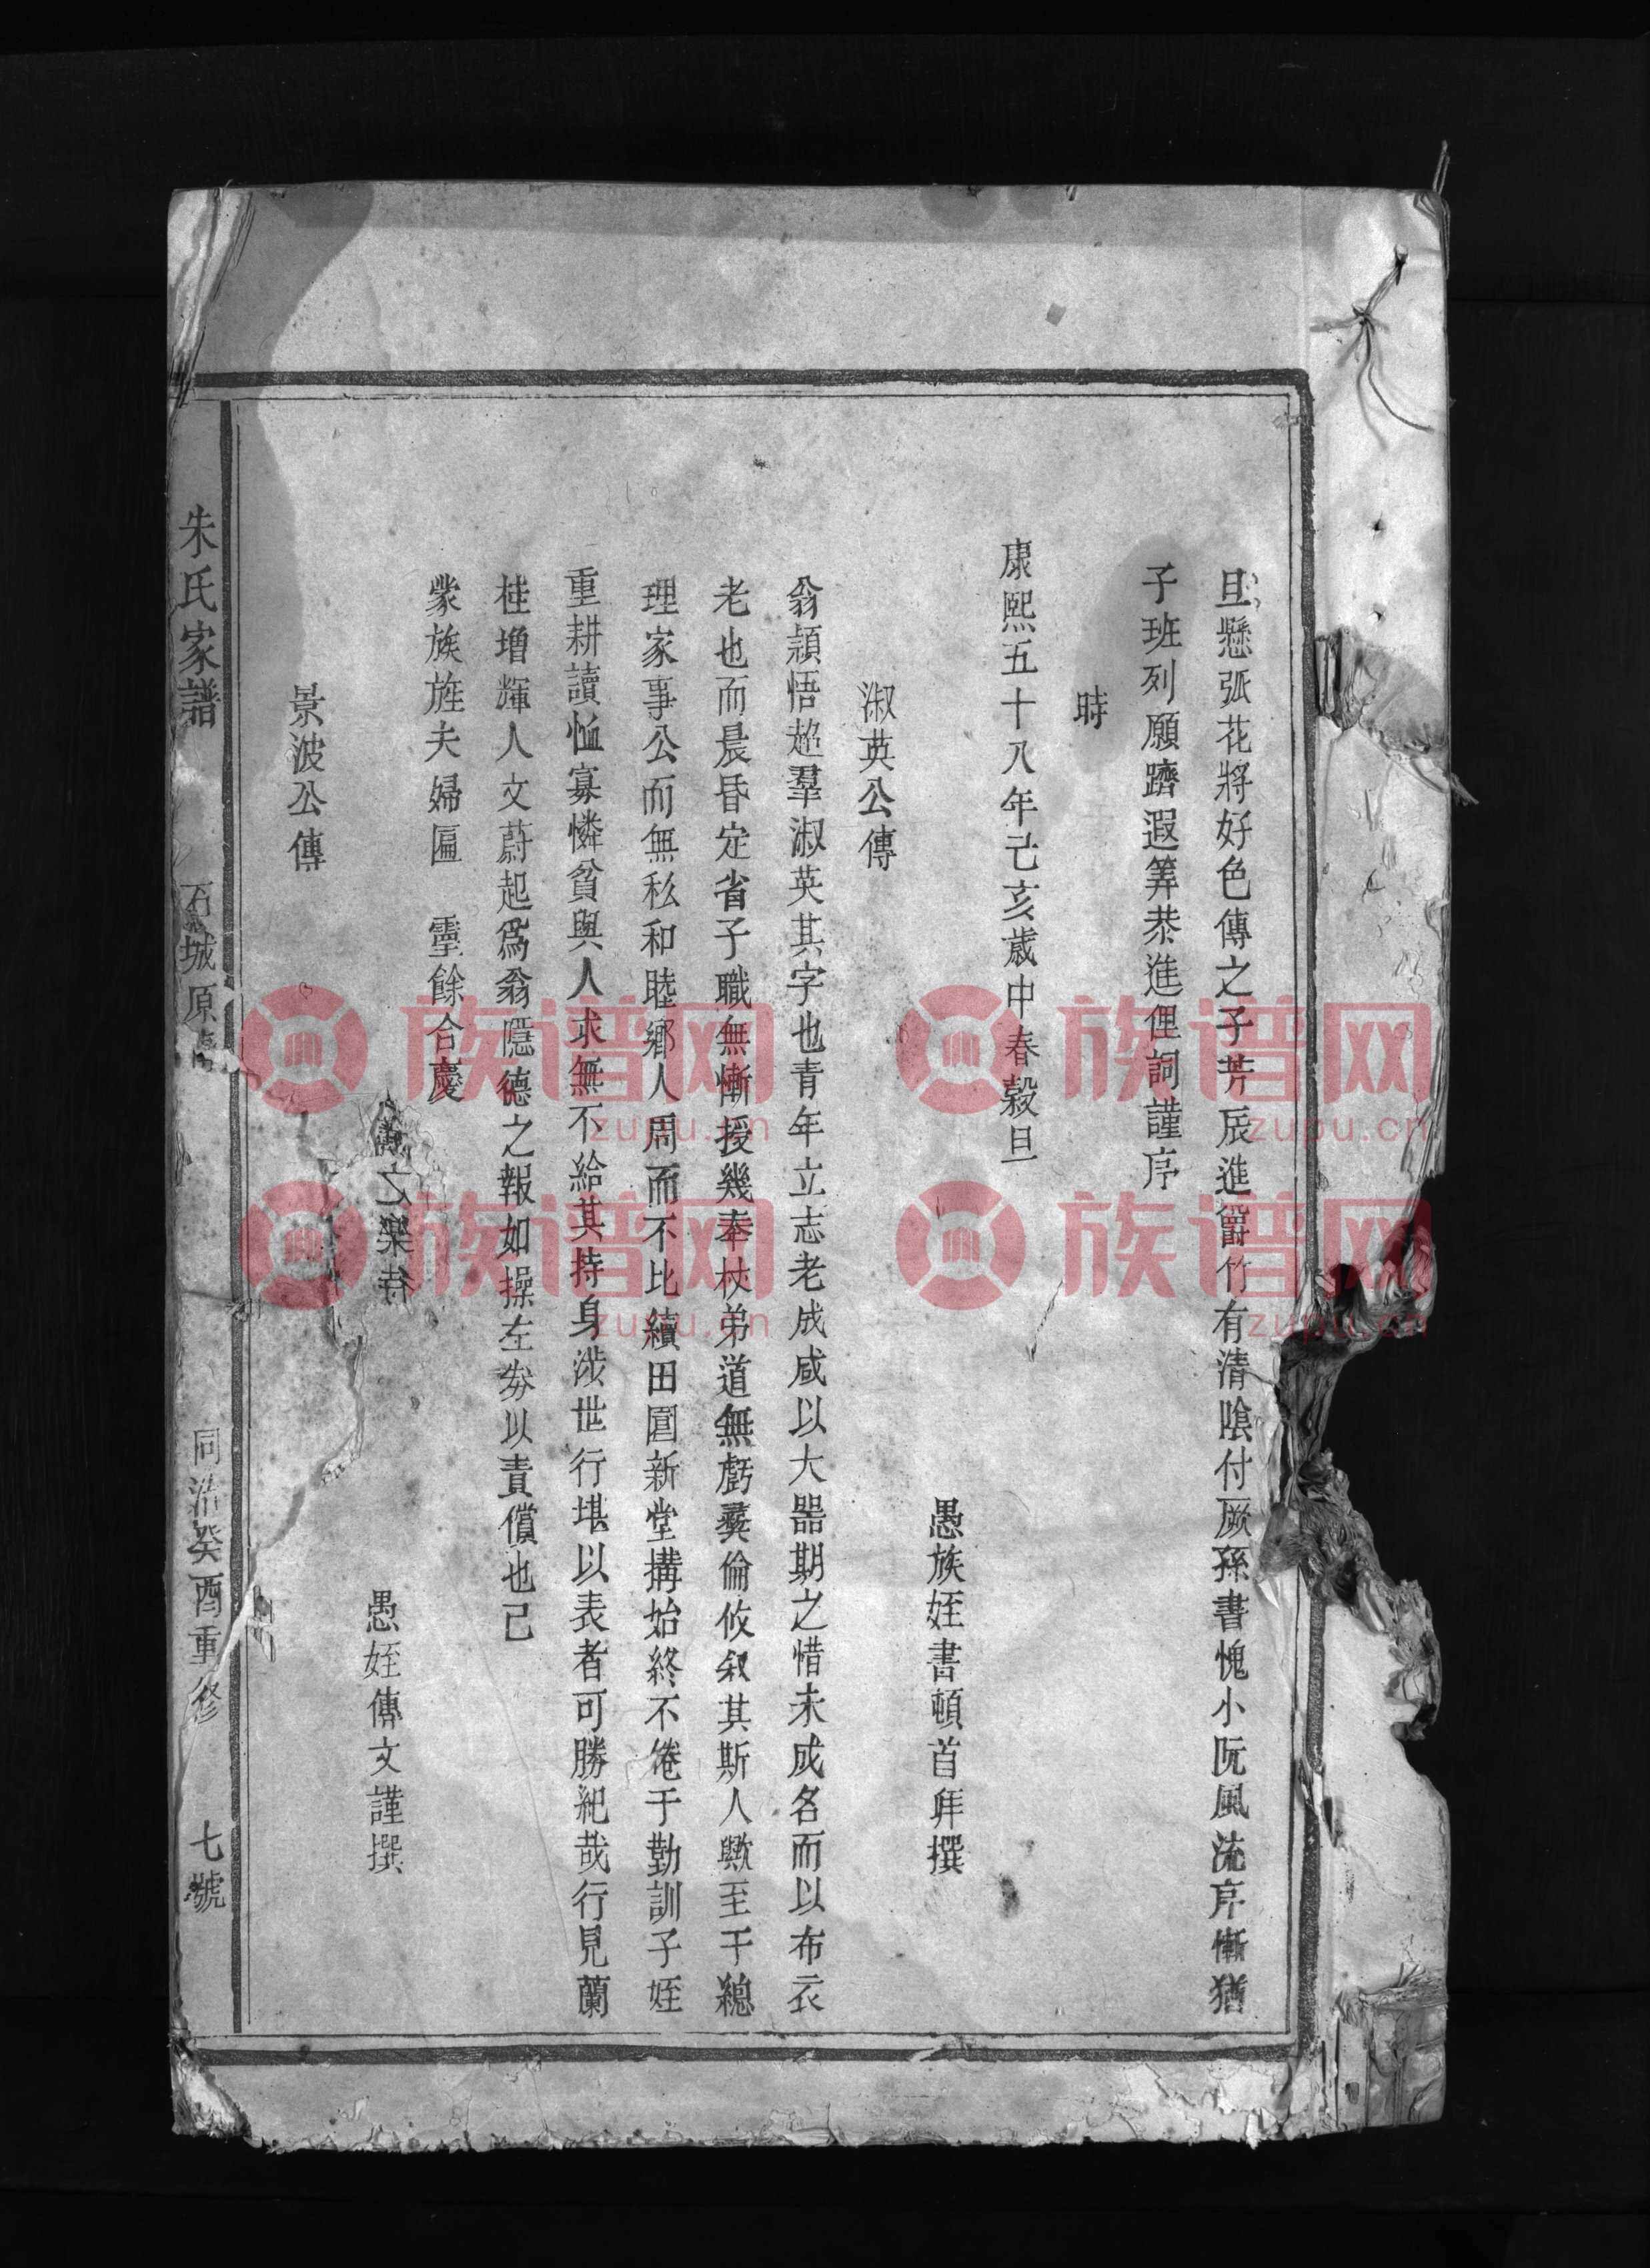 旦懸弧花將好色傳之子芳辰進爵竹有清陰付厥孫書愧小阮風流序慚猶
子班列願躋遐筭恭進俚詞謹序
時
康熙五十八年己亥歲中春穀旦
愚族姪書頓首拜撰
淑英公傳
翁頴悟超羣淑英其字也青年立志老成咸以大器期之惜未成名而以布衣
老也而晨昏定省子職無慚授幾奉杖弟道無虧彞倫攸叙其斯人歟至于總
理家事公而無私和睦鄉人周而不比續田園新堂搆始終不倦于勤訓子姪
重耕讀恤寡憐貧與人求無不給其持身涉世行堪以表者可勝紀哉行見蘭
桂增輝人文蔚起爲翁隱德之報如操左劵以責償也已
蒙族旌夫婦匾 孁餘合慶
之樂待
愚姪傳文謹撰
景波公傳
朱氏家譜 石城原 同治癸酉重修 七號
族谱网 zupu.cn
族谱网 zupu.cn
族谱网 zupu.cn
族谱网 zupu.cn